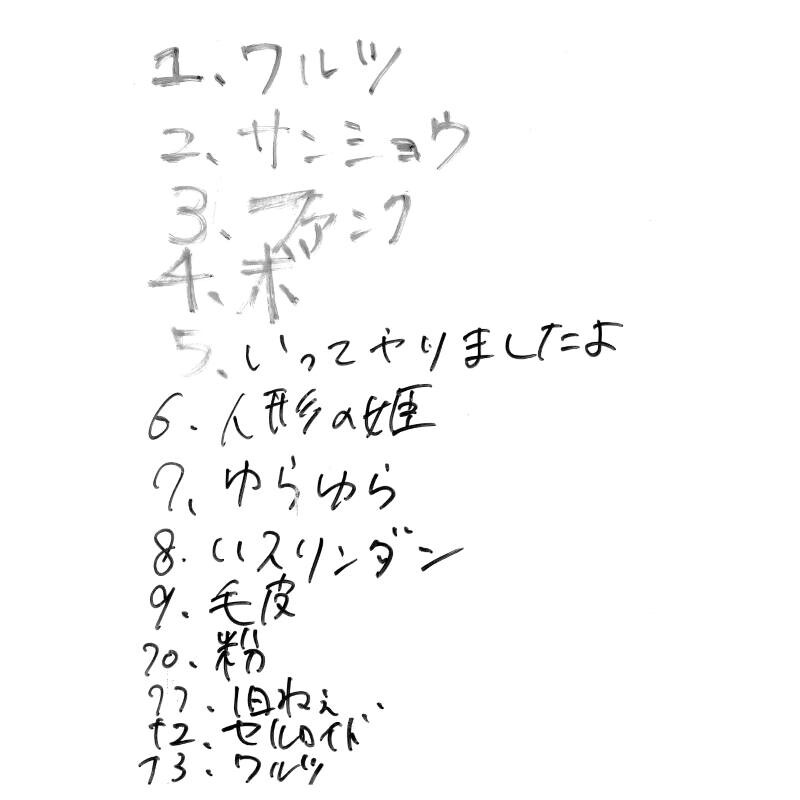 1、ワルツ
2、サンショウ
3、ファンク
4、ボ
5、いってやりましたよ
6.人形の姫
7、ゆらゆら
8.いスリンダン
9.毛皮
10、粉
11.旧ねぇ..
12、セルロイド
13.ワルツ